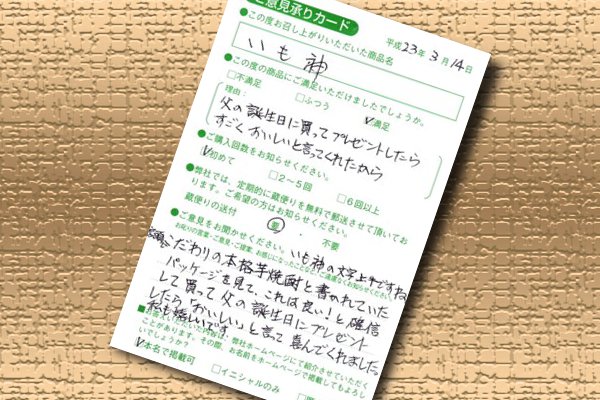 ご意見承りカード
平成23年3月14日
●この度お召し上がりいただいた商品名
いも神
●この度の商品にご満足いただけましたでしょうか。
□不満足 □ふつう ☑満足
理由:
父の誕生日に買ってプレゼントしたら
すごくおいしいと言ってくれたから
●ご購入回数をお知らせください。
☑初めて □2~5回 □6回以上
●弊社では、定期的に蔵便りを無料で郵送させて頂いてお
ります。ご希望の方はお知らせください。
蔵便りの送付 要 ・ 不要
●ご意見をお聞かせください。いも神の文字上手ですね
お叱りの言葉・ご意見・ご提案、お感じになったことなど、ご遠慮なくお知らせください。
こだわりの本格芋焼酎と書かれていた
パッケージを見て、これは良い!と確信
して買って父の誕生日にプレゼント
したら「おいしい」と言って喜んでくれました。
私も嬉しいです
弊社ホームページにて紹介させていただく
ことがあります。その際、お名前をホームページで掲載してもよろし
いでしょうか?
☑本名で掲載可 □イニシャルのみ